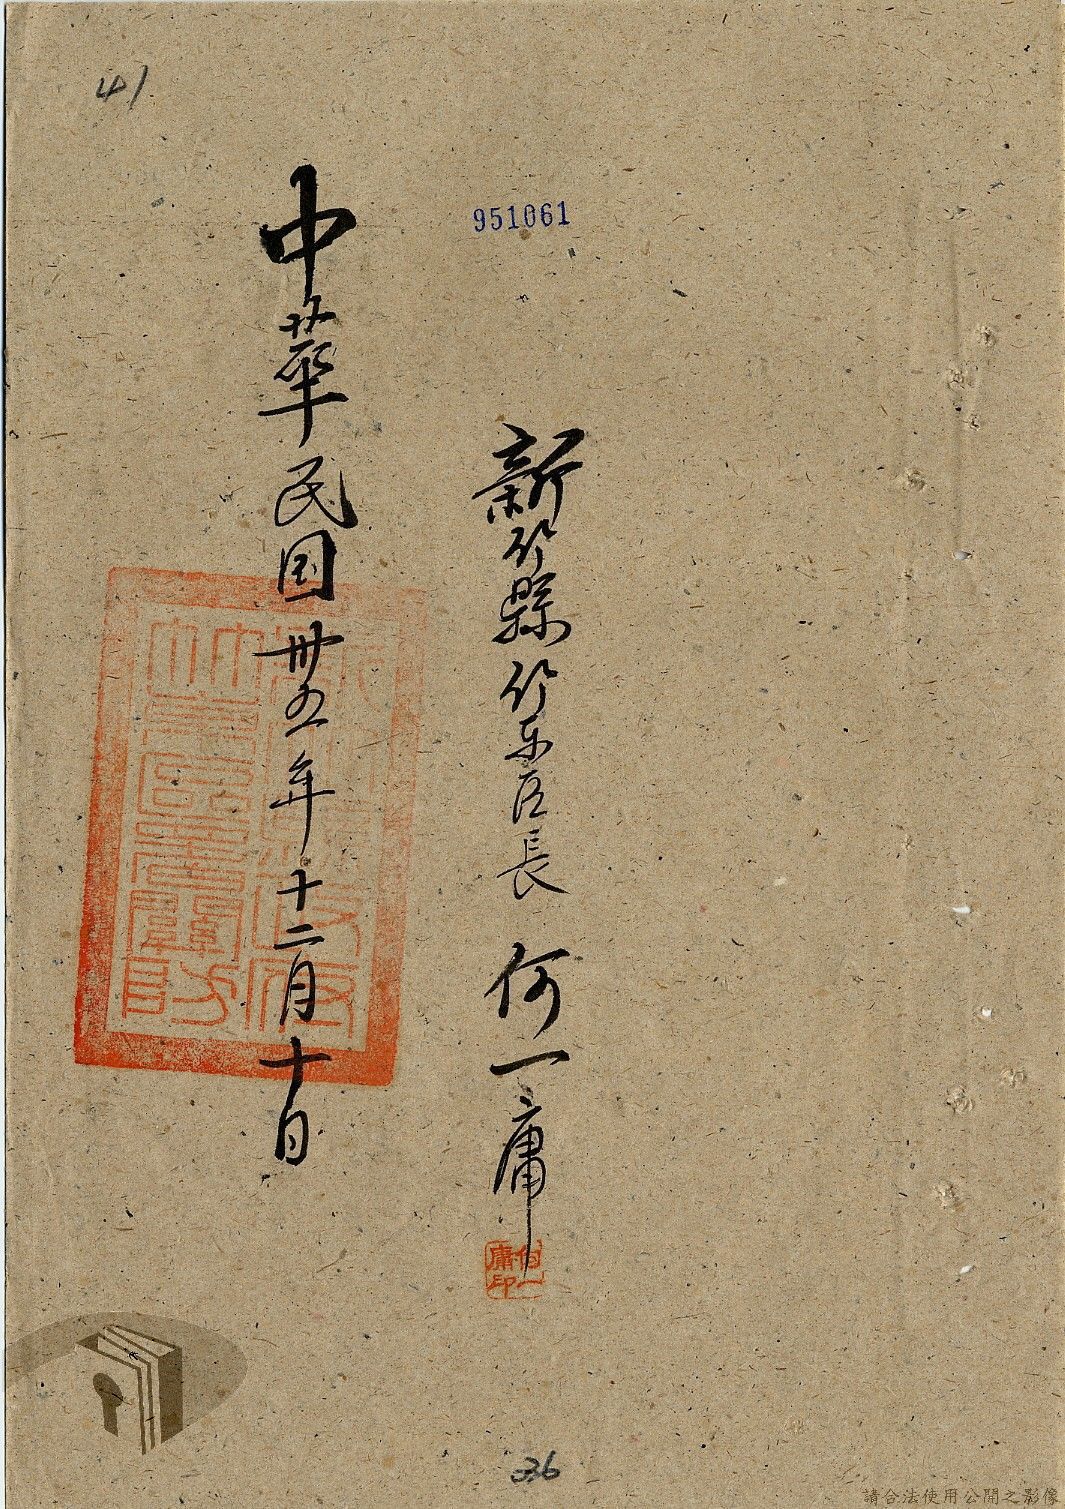 41
951061
新竹縣竹东区長 何一庸
何一庸印
中華民国卅五年十二月十日
36
請合法使用公開之影像